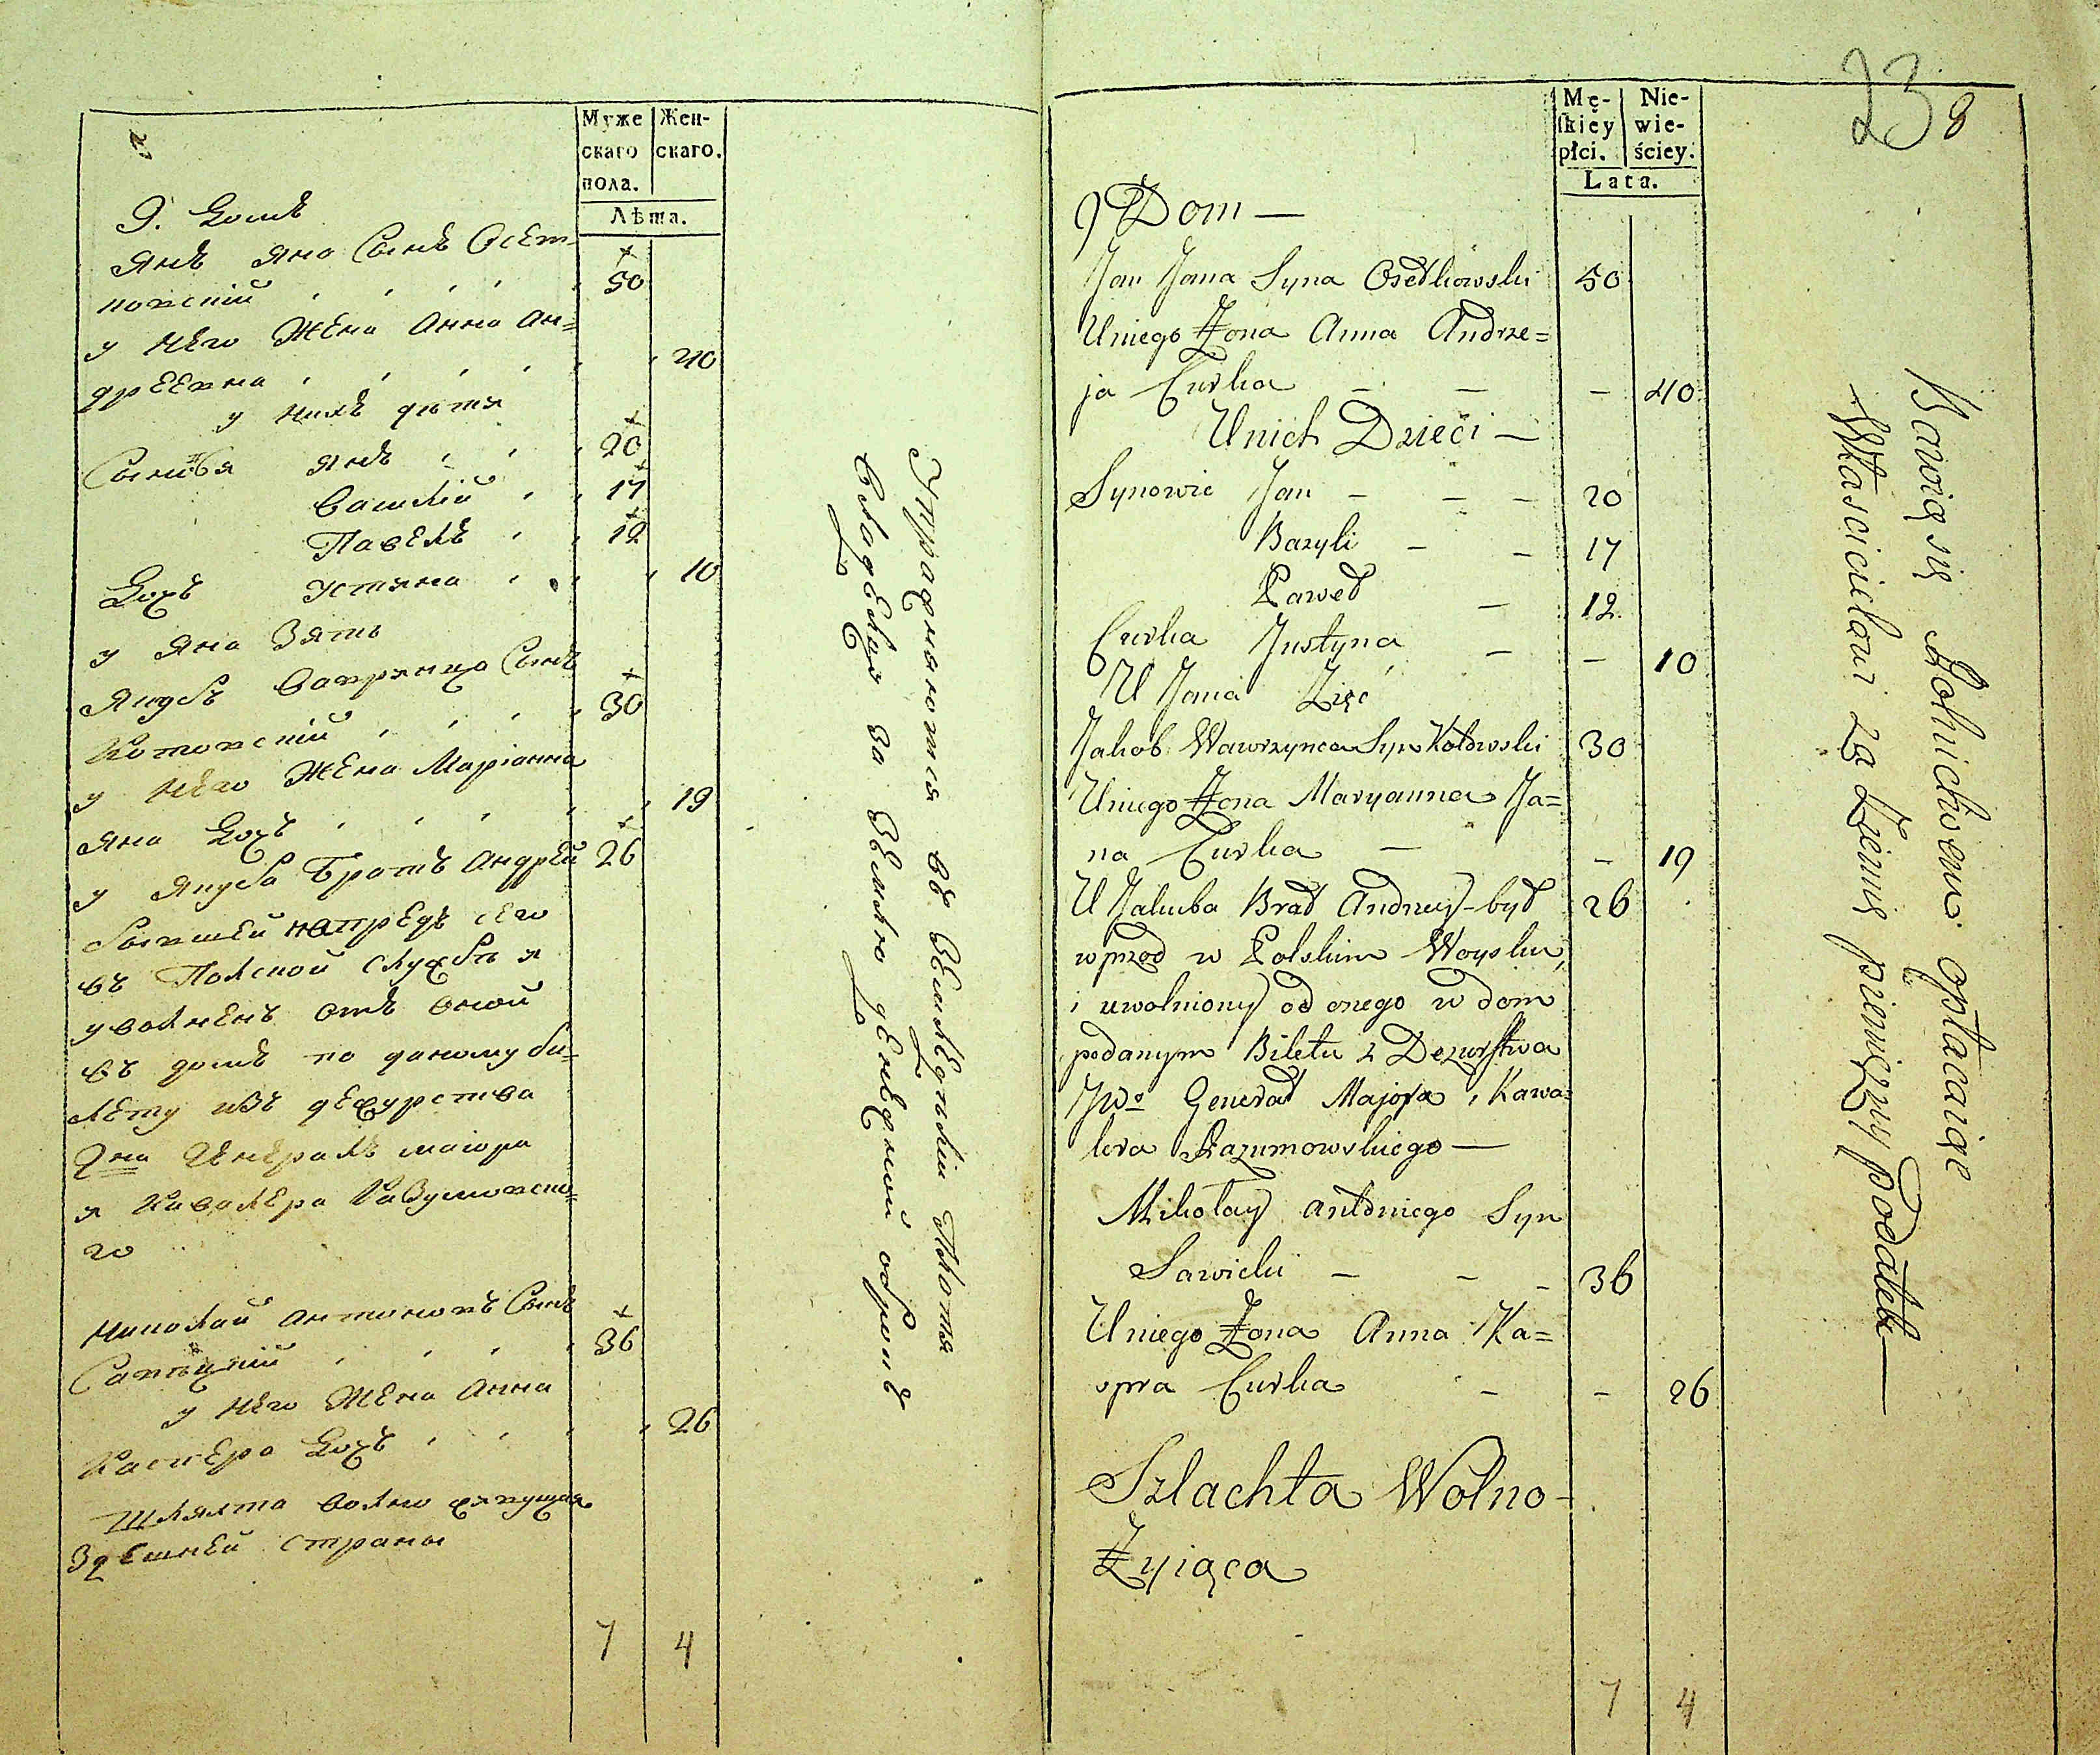 Муже
скаго
пола.
Жен-
скаго.
Лѣта.
9. Домъ
Янъ Яна Сынъ Осет-
ковскій 50
у него Жена Анна Ан=
дреевна 40
у нихъ дѣти
Сыновья Янъ 20
Василій 17
Павелъ 12
Дочь Устина 10
у Яна Зять
Якубъ Вавринца Сынъ
Котовскій 30
у него Жена Маріанна
Яна Дочь 19
у Якуба Братъ Андрей 26
бывшей напредъ сего
въ Полской службѣ и
уволненъ отъ оной
въ домъ по даному би-
лету изъ дежурства
Гна Генералъ маіора
и Кавалера Разумовска=
го
Николай Антоновъ Сынъ
Савицкій 36
у него Жена Анна
Каспера Дочь 26
Шляхта волно живущая
здешней страны
7 4
Упражняются въ земледѣліи платя
владельцу за землю денежной оброкъ
23 8
Mę-
skiey
płci.
Nie-
wie-
ściey.
Lata.
9 Dom —
Jan Jana Syna Osetkowski 50
Uniego Żona Anna Andrze=
ja Curka — — — 40
Unich Dzieci —
Synowie Jan — — — 20
Bazyli — — 17
Paweł — 12
Curka Justyna — — 10
U Jana Zięć
Jakob Wawrzynca Syn Kotowski 30
Uniego Żona Maryanna Ja=
na Curka — — 19
U Jakuba Brat Andrzey — był 26
wprzod w Polskim Woysku,
i uwolniony od onego w dom
podanym Biletu z Dezurstwa
JWo Generał Majora i Kawa=
lera Razumowskiego —
Mikołay Antoniego Syn
Sawicki — — — 36
Uniego Żona Anna Ka=
spra Curka — — 26
Szlachta Wolno —
Żyiąca
7 4
Bawią się Rolnictwem opłacaiąc
Właścicielowi za Ziemię pieniężny Podatek —